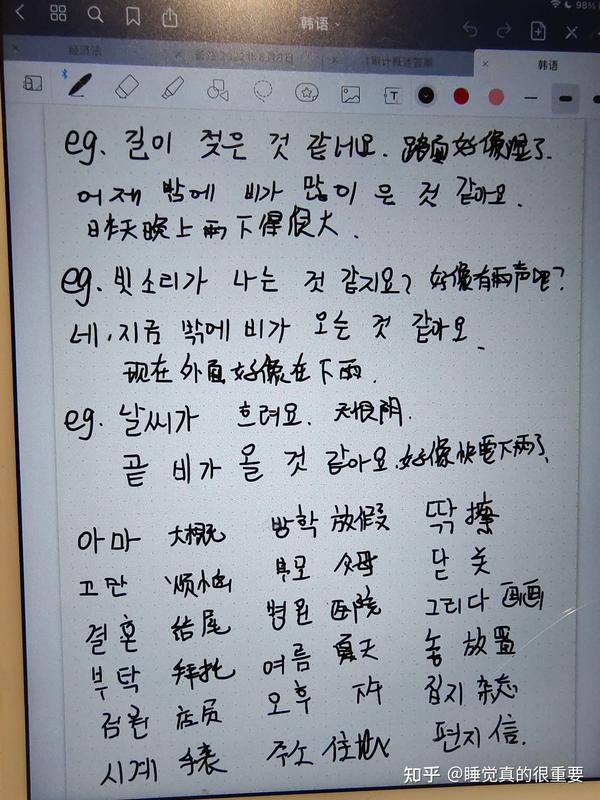 98%
韩语
经济法
韩语
eg. 길이 젖은 것 같네요. 路面好像湿了.
어제 밖에 비가 많이 온 것 같아요.
昨天晚上雨下得很大.
eg. 빗소리가 나는 것 같지요? 好像有雨声吧?
네, 지금 밖에 비가 오는 것 같아요.
现在外面好像在下雨.
eg. 날씨가 흐려요. 天很阴.
곧 비가 올 것 같아요. 好像快要下雨了.
아마 大概 방학 放假 딲 擦
고민 烦恼 부모 父母 닫 关
결혼 结尾 병원 医院 그리다 画画
부탁 拜托 여름 夏天 놓 放置
점원 店员 오후 下午 잡지 杂志
시계 手表 주소 住址 편지 信.
知乎 @睡觉真的很重要